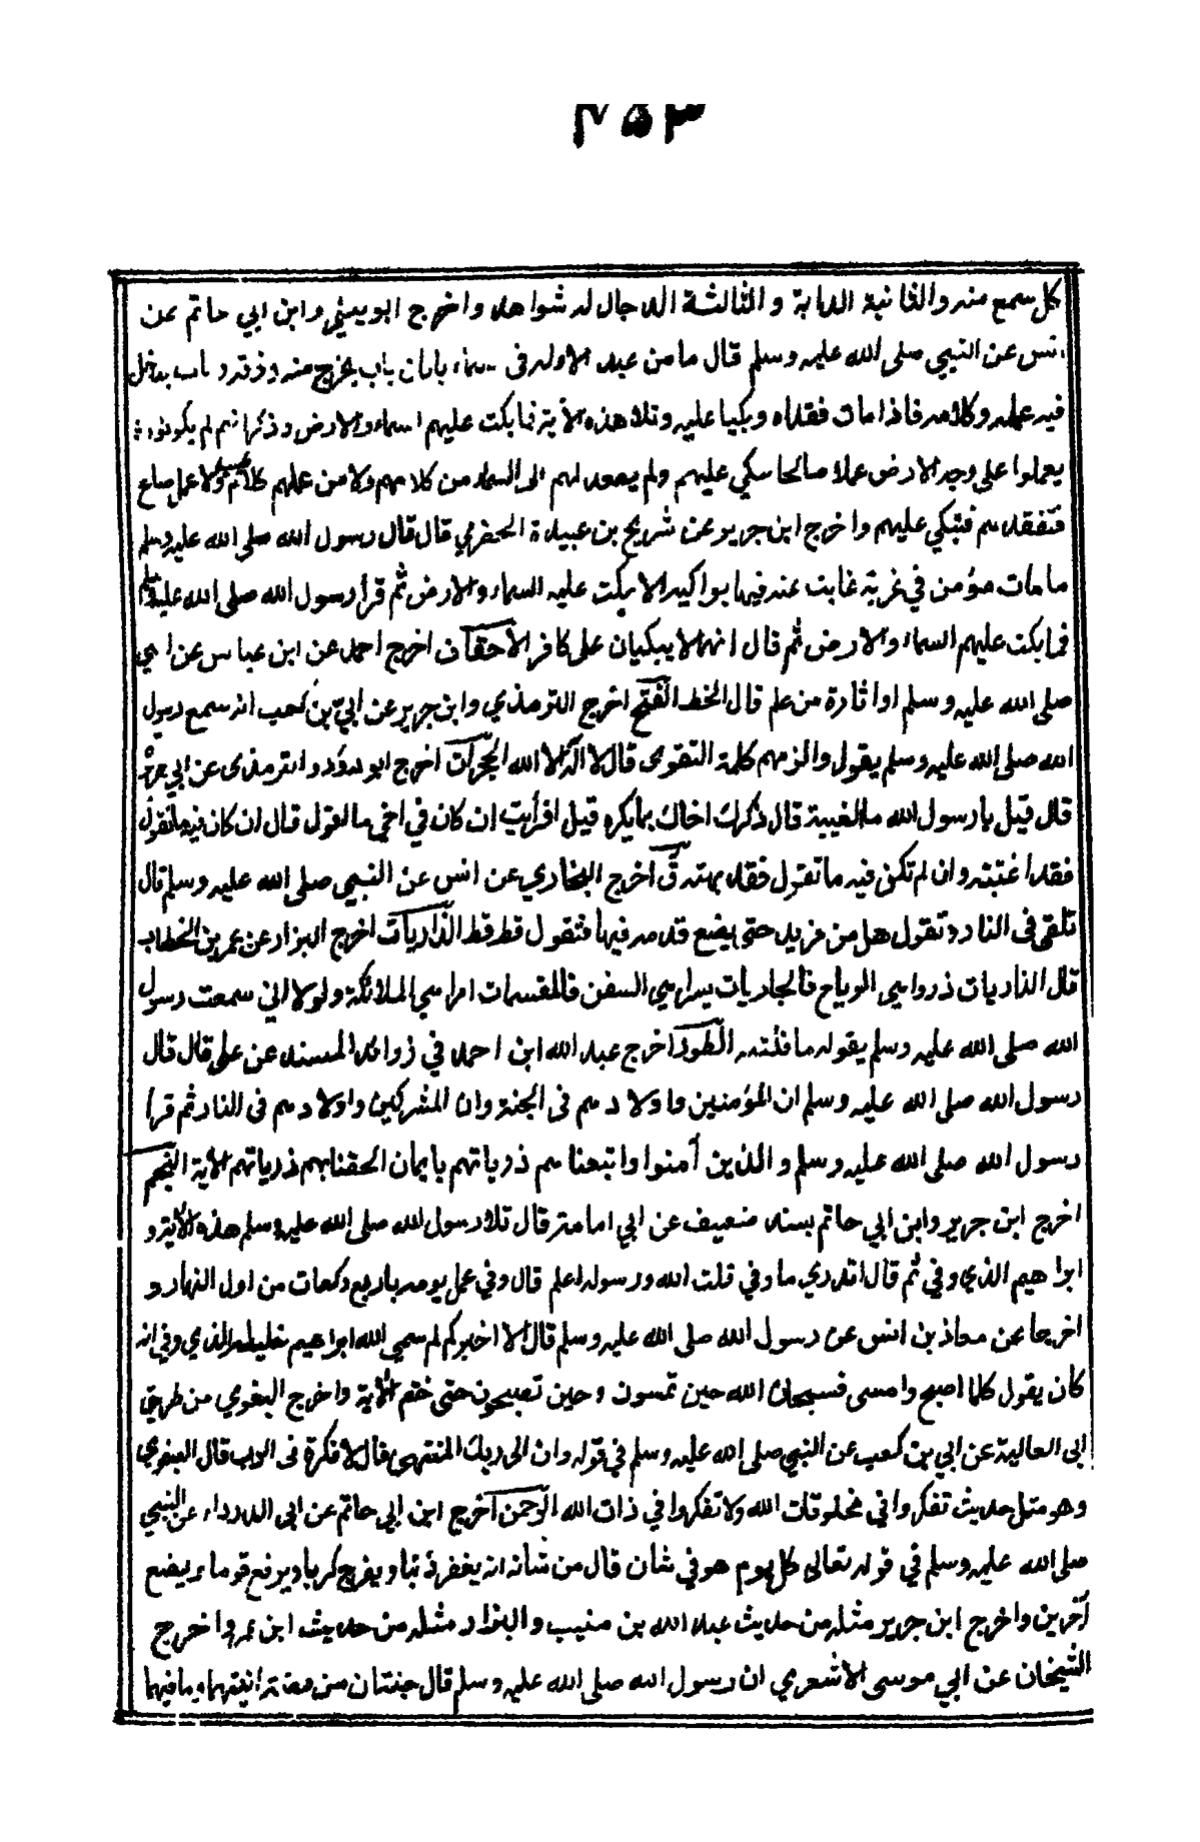 ٤٥٣
كل سمع منه والثانية الدابة و الثالثة الدجال له شواهد واخرج ابو يعلى وابن ابي حاتم عن
انس عن النبي صلى الله عليه وسلم قال ما من عبد الا وله فى سماء بابان باب يخرج منه رزقه و باب يدخل
فيه عمله وكلامه فاذا مات فقداه وبكيا عليه وتلا هذه الآية فما بكت عليهم السماء والارض وذكر انهم لم يكونوا
يعملوا على وجه الارض عملا صالحا يبكي عليهم ولم يصعد لهم الى السماء من كلامهم ولا من عملهم كلام طيب ولا عمل صالح
فتفقدهم فتبكي عليهم واخرج ابن جرير عن شريح بن عبيدة الحضرمي قال قال رسول الله صلى الله عليه وسلم
ما مات مؤمن في غربة غابت عنه فيها بواكيه الا بكت عليه السماء والارض ثم قرأ رسول الله صلى الله عليه وسلم
فما بكت عليهم السماء والارض ثم قال انهما لا يبكيان على كافر الاحقاف اخرج احمد عن ابن عباس عن النبي
صلى الله عليه وسلم او اثارة من علم قال الخط الفتح اخرج الترمذي وابن جرير عن ابي بن كعب انه سمع رسول
الله صلى الله عليه وسلم يقول والزمهم كلمة التقوى قال لا اله الا الله الحجرات اخرج ابو داؤد والترمذى عن ابي هريرة
قال قيل يا رسول الله ما الغيبة قال ذكرك اخاك بما يكره قيل افرأيت ان كان في اخي ما اقول قال ان كان فيه ما تقول
فقد اغتبته وان لم تكن فيه ما تقول فقد بهته ق اخرج البخاري عن انس عن النبي صلى الله عليه وسلم قال
تلقى فى النار وتقول هل من مزيد حتى يضع قدمه فيها فتقول قط قط الذاريات اخرج البزار عن عمر بن الخطاب
قال الذاريات ذروا هي الرياح فالجاريات يسرا هي السفن فالمقسمات امرا هي الملائكة ولولا اني سمعت رسول
الله صلى الله عليه وسلم يقوله ما قلته الطور اخرج عبد الله ابن احمد في زوائد المسند عن على قال قال
رسول الله صلى الله عليه وسلم ان المؤمنين واولادهم فى الجنة وان المشركين واولادهم فى النار ثم قرا
رسول الله صلى الله عليه وسلم و الذين آمنوا واتبعناهم ذرياتهم بايمان الحقنا بهم ذرياتهم الآية النجم
اخرج ابن جرير وابن ابي حاتم بسند ضعيف عن ابي امامة قال تلا رسول الله صلى الله عليه وسلم هذه الآية و
ابراهيم الذي وفى ثم قال اتدري ما وفي قلت الله ورسوله اعلم قال وفي عمل يومه باربع ركعات من اول النهار و
اخرجا عن معاذ بن انس عن رسول الله صلى الله عليه وسلم قال الا اخبركم لم سمي الله ابراهيم خليله الذي وفى انه
كان يقول كلما اصبح وامسى فسبحان الله حين تمسون وحين تصبحون حتى ختم الآية واخرج البغوي من طريق
ابى العالية عن ابي بن كعب عن النبي صلى الله عليه وسلم في قوله وان الى ربك المنتهى قال لا فكرة فى الرب قال البغوي
وهو مثل حديث تفكروا في مخلوقات الله ولا تفكروا في ذات الله الرحمن اخرج ابن ابي حاتم عن ابى الدرداء عن النبي
صلى الله عليه وسلم في قوله تعالى كل يوم هو في شان قال من شانه ان يغفر ذنبا ويفرج كربا ويرفع قوما ويضع
آخرين واخرج ابن جرير مثله من حديث عبد الله بن منيب والبزار مثله من حديث ابن عمر واخرج
الشيخان عن ابي موسى الاشعري ان رسول الله صلى الله عليه وسلم قال جنتان من فضة آنيتهما وما فيهما